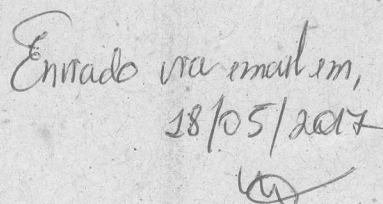 Enviado via email em,
18/05/2017